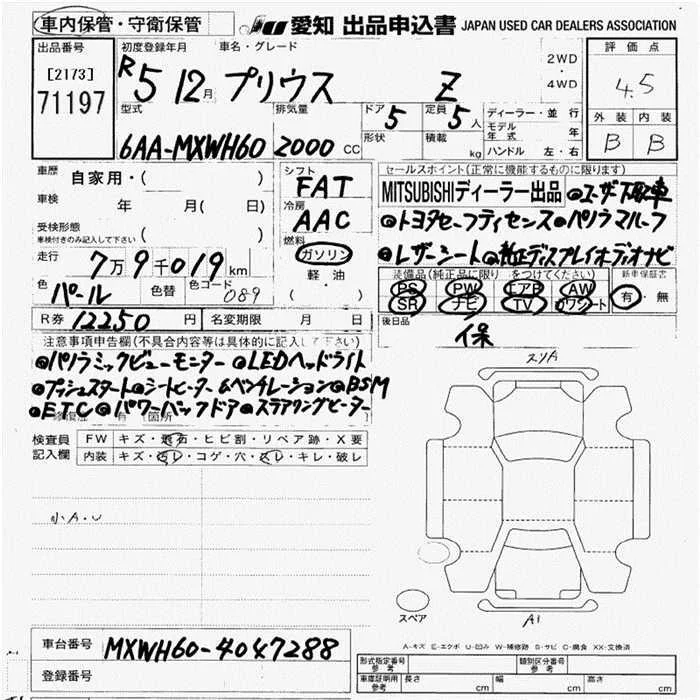 車内保管・守衛保管
愛知 出品申込書 JAPAN USED CAR DEALERS ASSOCIATION
出品番号 初度登録年月 車名・グレード 評価点
[2173]
71197
R5 12月 プリウス Z
2WD
・
4WD
4.5
型式 排気量 ドア 定員
6AA-MXWH60 2000 CC
5 5人
形状 積載 kg
ディーラー・並行
モデル年式 年
ハンドル 左・右
外装 内装
B B
車歴 自家用・( )
車検 年 月( 日)
受検形態
車検付きのみ記入して下さい ( )
走行 7万9千019km
色 パール 色替 色コード 089
R券 12250円 名変期限 月 日
シフト
FAT
冷房
AAC
燃料
ガソリン
軽油
( ・ )
セールスポイント(正常に機能するものに限ります)
MITSUBISHIディーラー出品 ●ユーザー下取車
●トヨタセーフティセンス●パノラマルーフ
●レザーシート●純正ディスプレイオーディオナビ
装備品(純正品に限り をつけてください) 新車保証書
PS PW エアB AW
SR ナビ TV カワシート
有・無
後日品
保
注意事項申告欄(不具合内容等は具体的に記入して下さい)
●パノラミックビューモニター ●LEDヘッドライト
●プッシュスタート●シートヒーター&ベンチレーション●BSM
●ETC●パワーバックドア●ステアリングヒーター
修復歴 有(箇所
検査員記入欄
FW キズ・飛石・ヒビ割・リペア跡・X要
内装 キズ・汚レ・コゲ・穴・スレ・キレ・破レ
小A・U
スリA
スペア
A1
A-キズ E-エクボ U-凹み W-補修跡 S-サビ C-腐食 XX-交換済
車台番号 MXWH60-4047288
登録番号
形式指定番号 参考 類別区分番号 参考
車庫証明用 参考 長さ cm 幅 cm 高さ cm